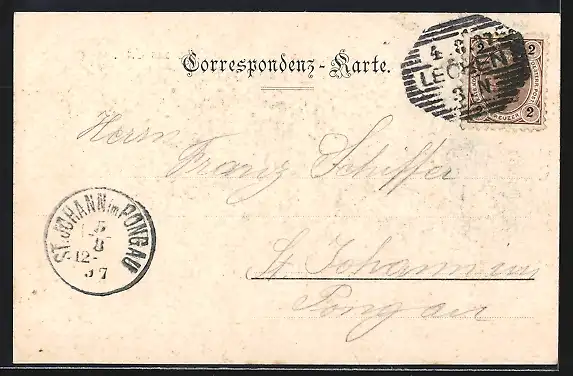 Correspondenz-Karte.
4 8 97
LEOBEN
3 N
2
2
KREUZER
Herrn
Franz Schiffer
ST. JOHANN im PONGAU
5
8
12-
97
St. Johann im
Pongau